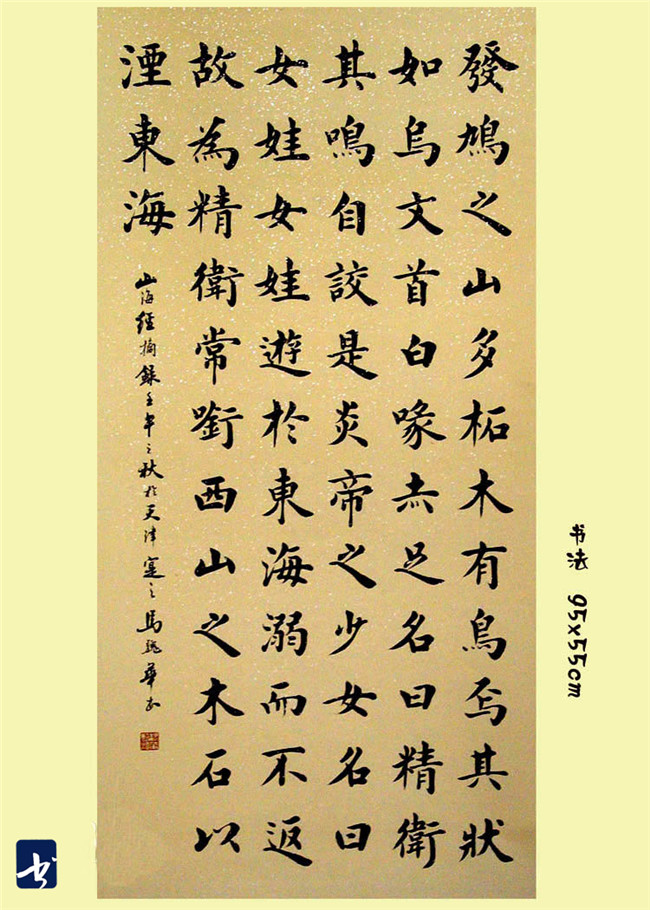 發鳩之山多柘木有鳥焉其狀
如烏文首白喙赤足名曰精衛
其鳴自詨是炎帝之少女名曰
女娃女娃遊於東海溺而不返
故為精衛常銜西山之木石以
湮東海
山海經摘錄壬午之秋於天津寔之馬魏華書
书法 95x55cm
书